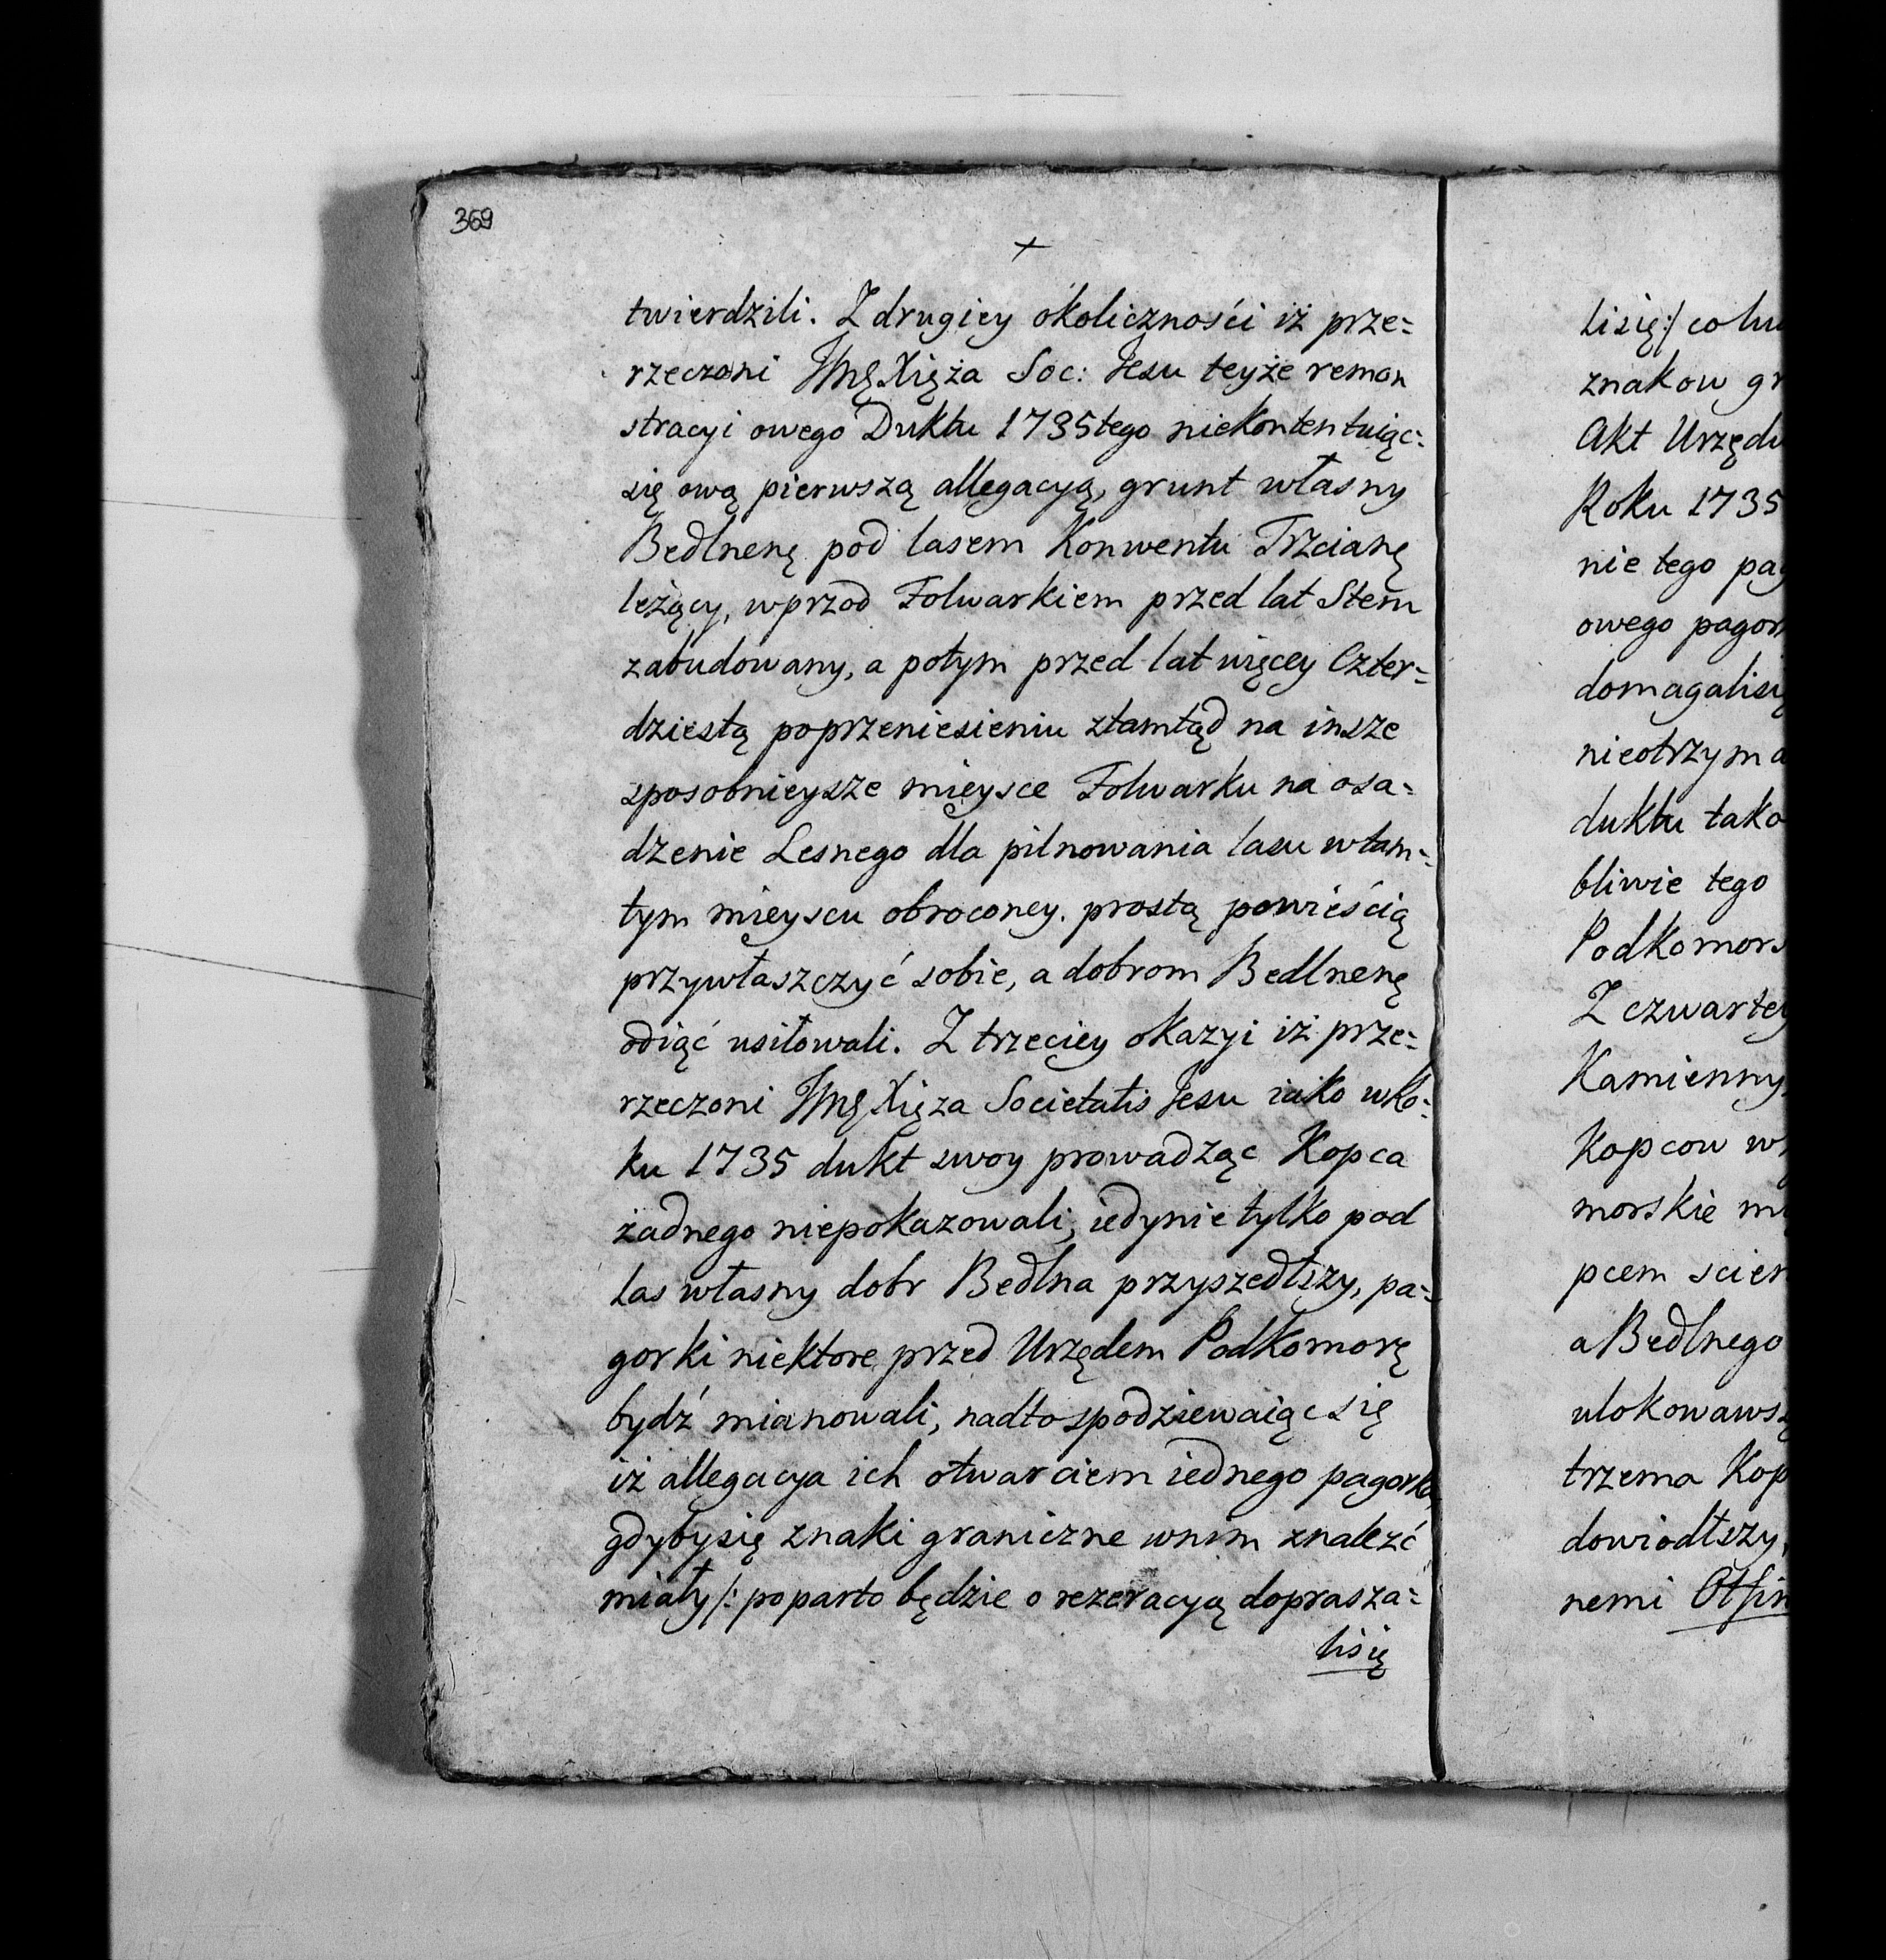 369
+
twierdzili. Z drugiey okoliczności iż prze=
rzeczoni Jmę Xięża Soc: Jesu teyże remon
stracyi owego Duktu 1735tego niekontentuiąc=
się ową pierwszą allegacyą, grunt własny
Bedlnenę pod lasem Konwentu Trzcianę
leżący, wprzod Folwarkiem przed lat Stem
zabudowany, a potym przed lat więcey Czter=
dziestą poprzeniesieniu ztamtąd na insze
sposobnieysze mieysce Folwarku na osa=
dzenie Lesnego dla pilnowania lasu wtam=
tym mieyscu obroconey. prostą powieścią
przywłaszczyć sobie, a dobrom Bedlnenę
odiąć usiłowali. Z trzeciey okazyi iż prze=
rzeczoni Jmę Xięza Societatis Jesu iako wRo=
ku 1735 dukt swoy prowadząc Kopca
żadnego niepokazowali, iedynie tylko pod
las własny dobr Bedlna przyszedłszy, pa=
gorki niektore przed Urzędem Podkomorę
bydź mianowali, nadto spodziewaiąc się
iż allegacya ich otwarciem iednego pagorka
gdybysię znaki graniczne wnim znaleźć
miały /: poparto będzie o rezeracyą doprasza=
lisię
lisię :/ co
znakow
Akt Urzędu
Roku 1735
nie tego
owego
domagalisię
duktu tako
bliwie tego
Podkomors
Z czwartey
Kamienny
Kopcow
morskie
pcem
a Bedlnego
ulokowaws
trzema Kop
dowiodłszy,
nemi